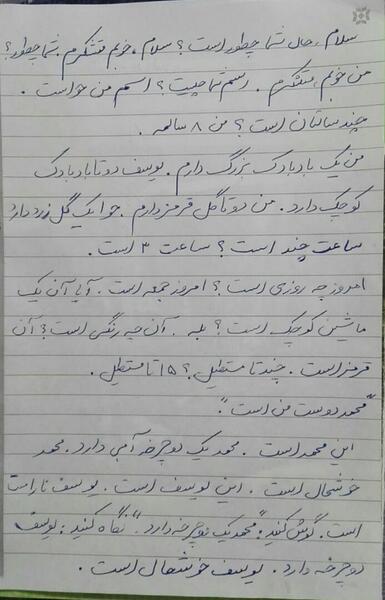 سلام، حال شما چطور است؟ سلام، خوبم متشکرم. شما چطور؟
من خوبم، متشکرم. اسم شما چیست؟ اسم من حوا است.
چند سالتان است؟ من ۸ سالمه.
من یک بادبادک بزرگ دارم. یوسف دو تا بادبادک
کوچک دارد. من دو تا گل قرمز دارم. حوا یک گل زرد دارد
ساعت چند است؟ ساعت ۳ است.
امروز چه روزی است؟ امروز جمعه است. آیا آن یک
ماشین کوچک است؟ بله. آن چه رنگی است؟ آن
قرمز است. چند تا مستطیل؟ ۱۵ تا مستطیل.
"محمد دوست من است".
این محمد است. محمد یک دوچرخه آبی دارد. محمد
خوشحال است. این یوسف است. یوسف ناراحت
است. گوش کنید: "محمد یک دوچرخه دارد". نگاه کنید: یوسف
دوچرخه دارد. یوسف خوشحال است.